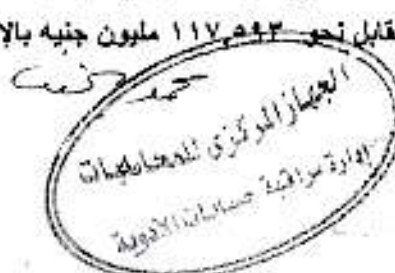 قابل نحو ١١٧,٥٩٣ مليون جنيه بالإ
محمد
الجهاز المركزى للمحاسبات
إدارة مراقبة حسابات الأدوية